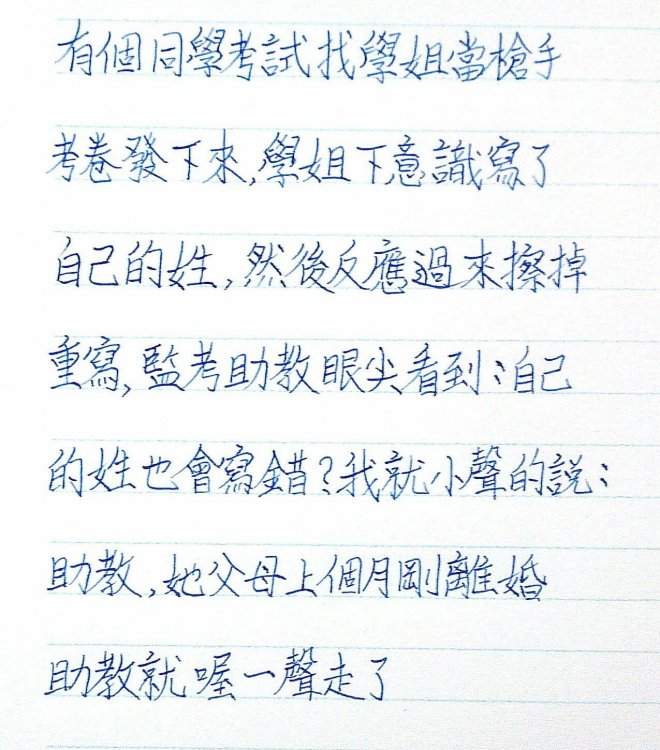 有個同學考試找學姐當槍手
考卷發下來,學姐下意識寫了
自己的姓,然後反應過來擦掉
重寫,監考助教眼尖看到:自己
的姓也會寫錯?我就小聲的說:
助教,她父母上個月剛離婚
助教就喔一聲走了